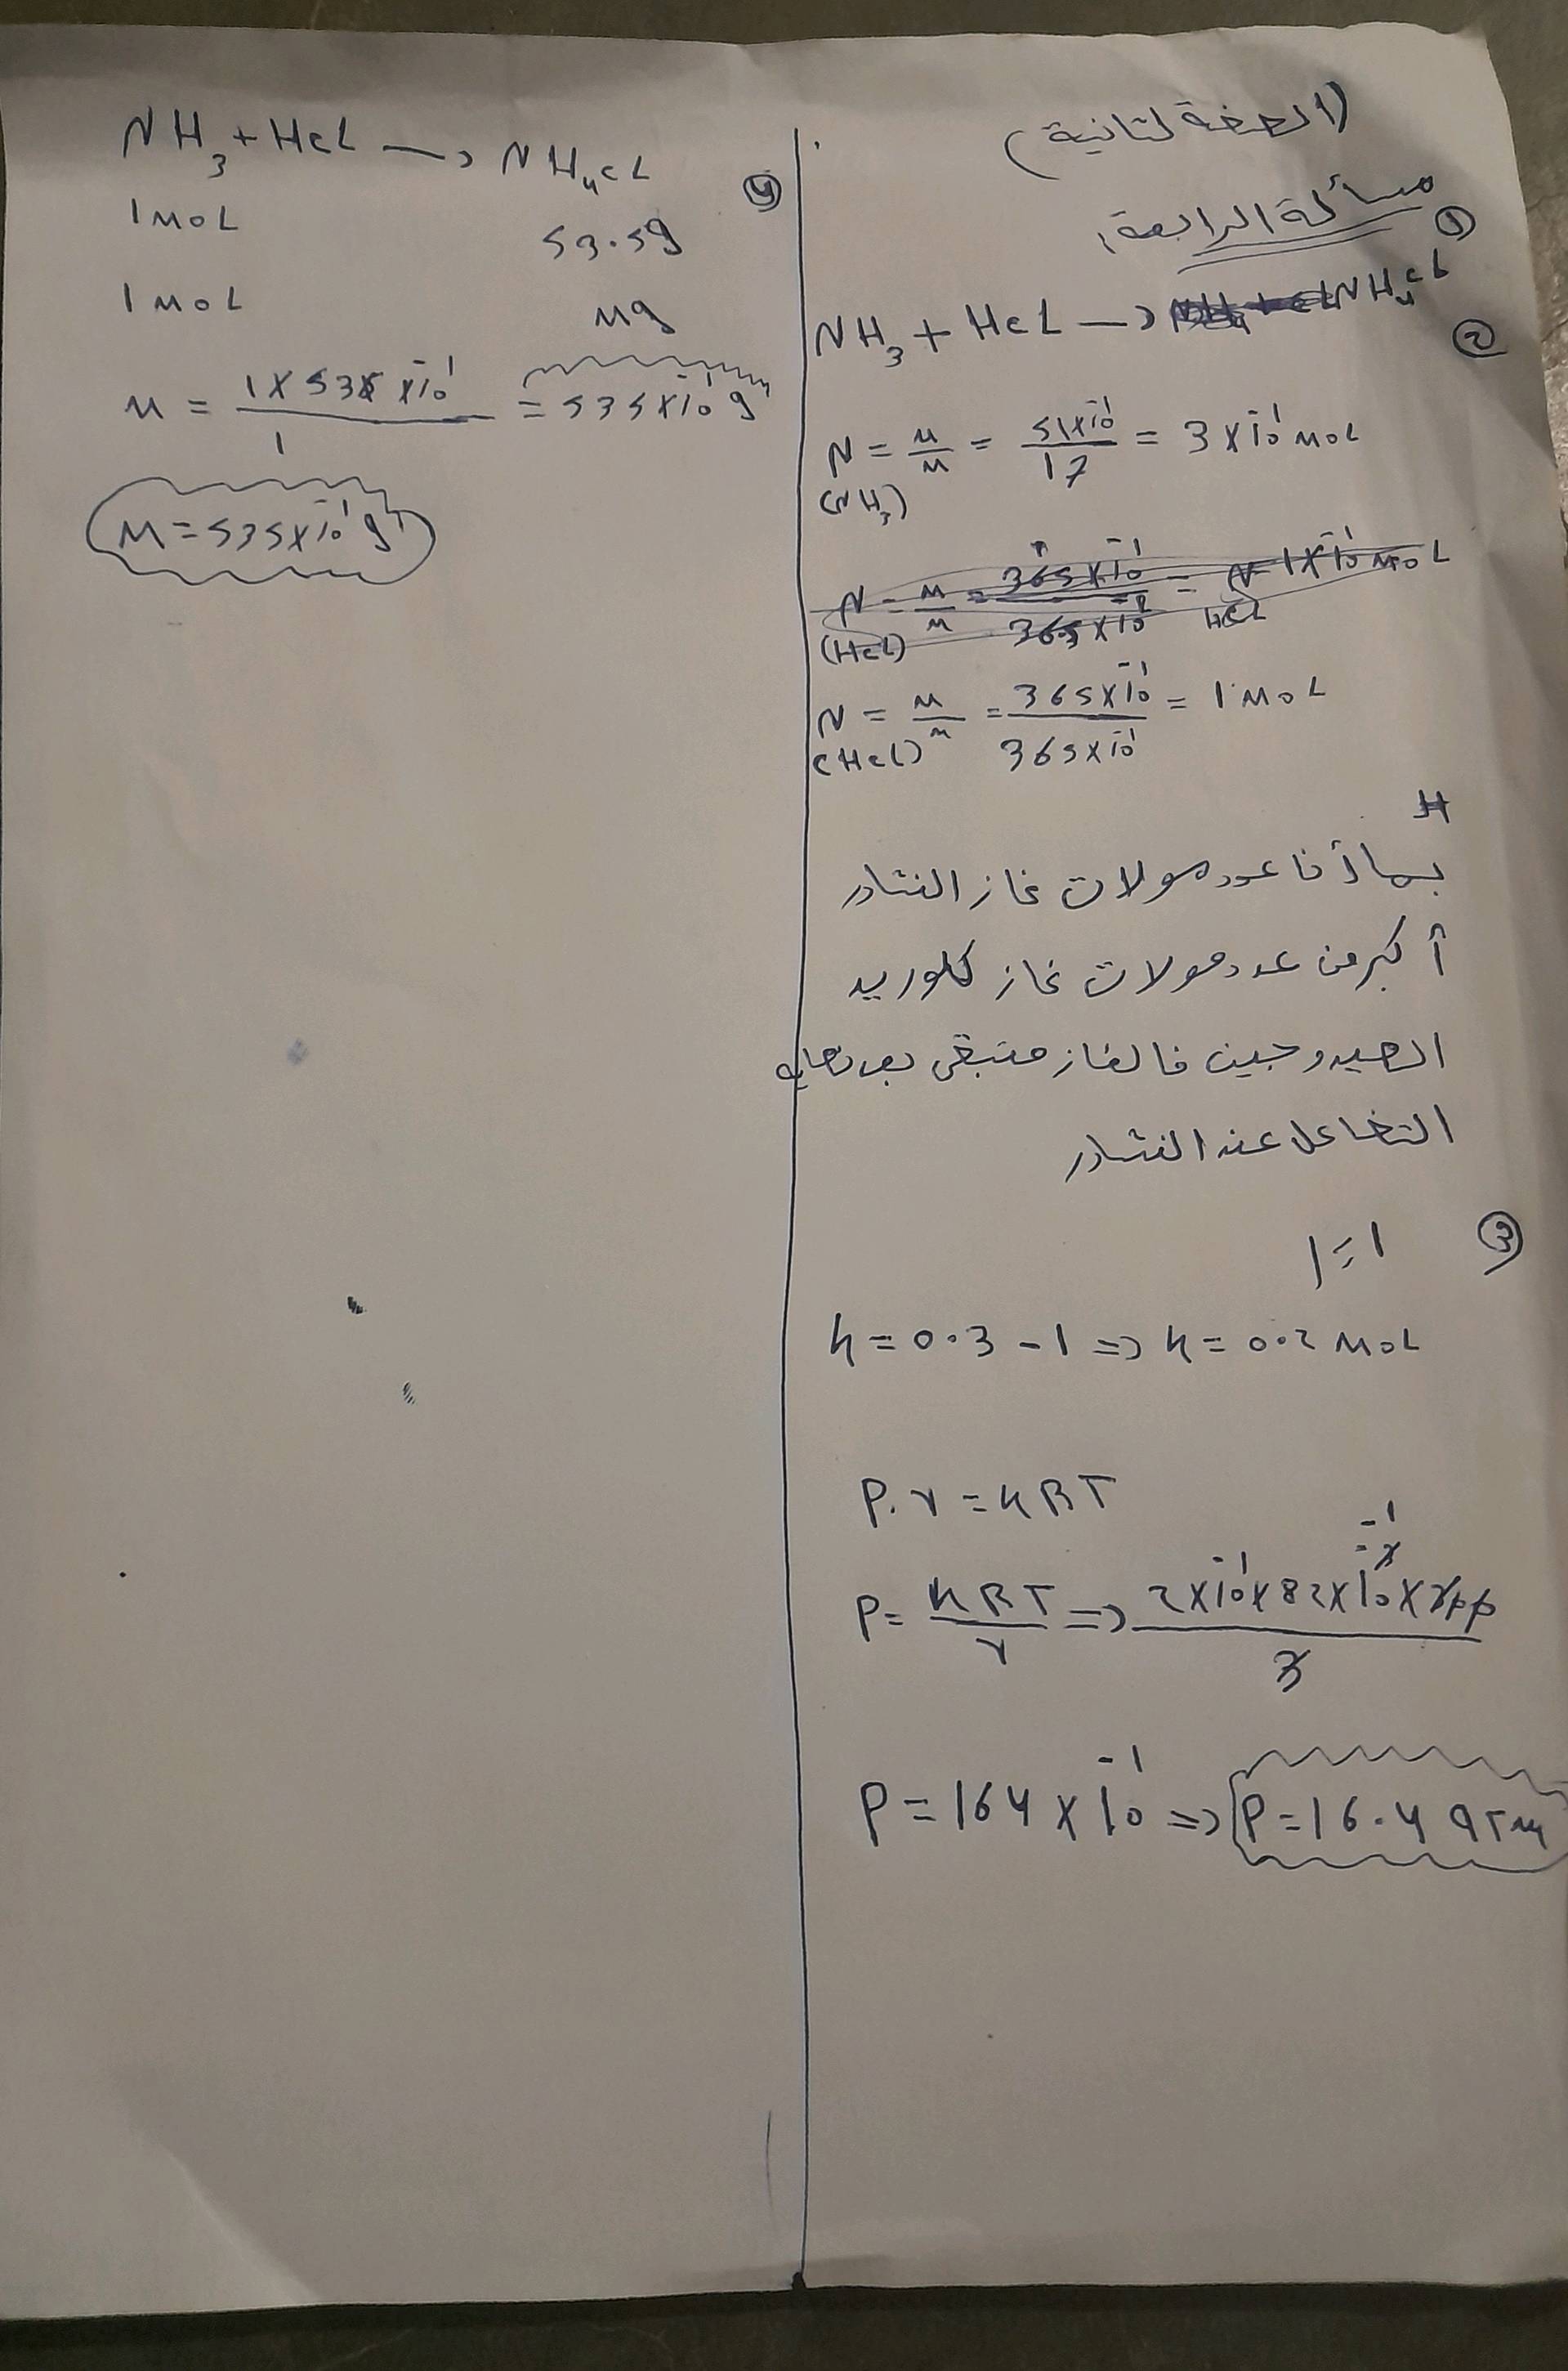 (الصفحة لثانية)
مسألة الرابعة:
①
NH₃ + HCL → NH₄CL
②
N (NH₃) = M/M = 51×10⁻¹/17 = 3×10⁻¹ MOL
N (HCL) = M/M = 365×10⁻¹/365×10⁻¹ = 1 MOL
بما أن عدد مولات غاز النشادر
أكبر من عدد مولات غاز كلوريد
الهيدروجين فالغاز متبقي بعد نهاية
التفاعل عند النشادر
③
n = 0.3 - 1 => n = 0.2 MOL
P.V = nRT
P = nRT/V => 2×10⁻¹×82×10⁻¹×300/3
P = 164×10⁻¹ => P = 16.4 ATM
④
NH₃ + HCL → NH₄CL
1 MOL 53.5g
1 MOL Mg
M = 1×535×10⁻¹/1 = 535×10⁻¹ g
M = 535×10⁻¹ g